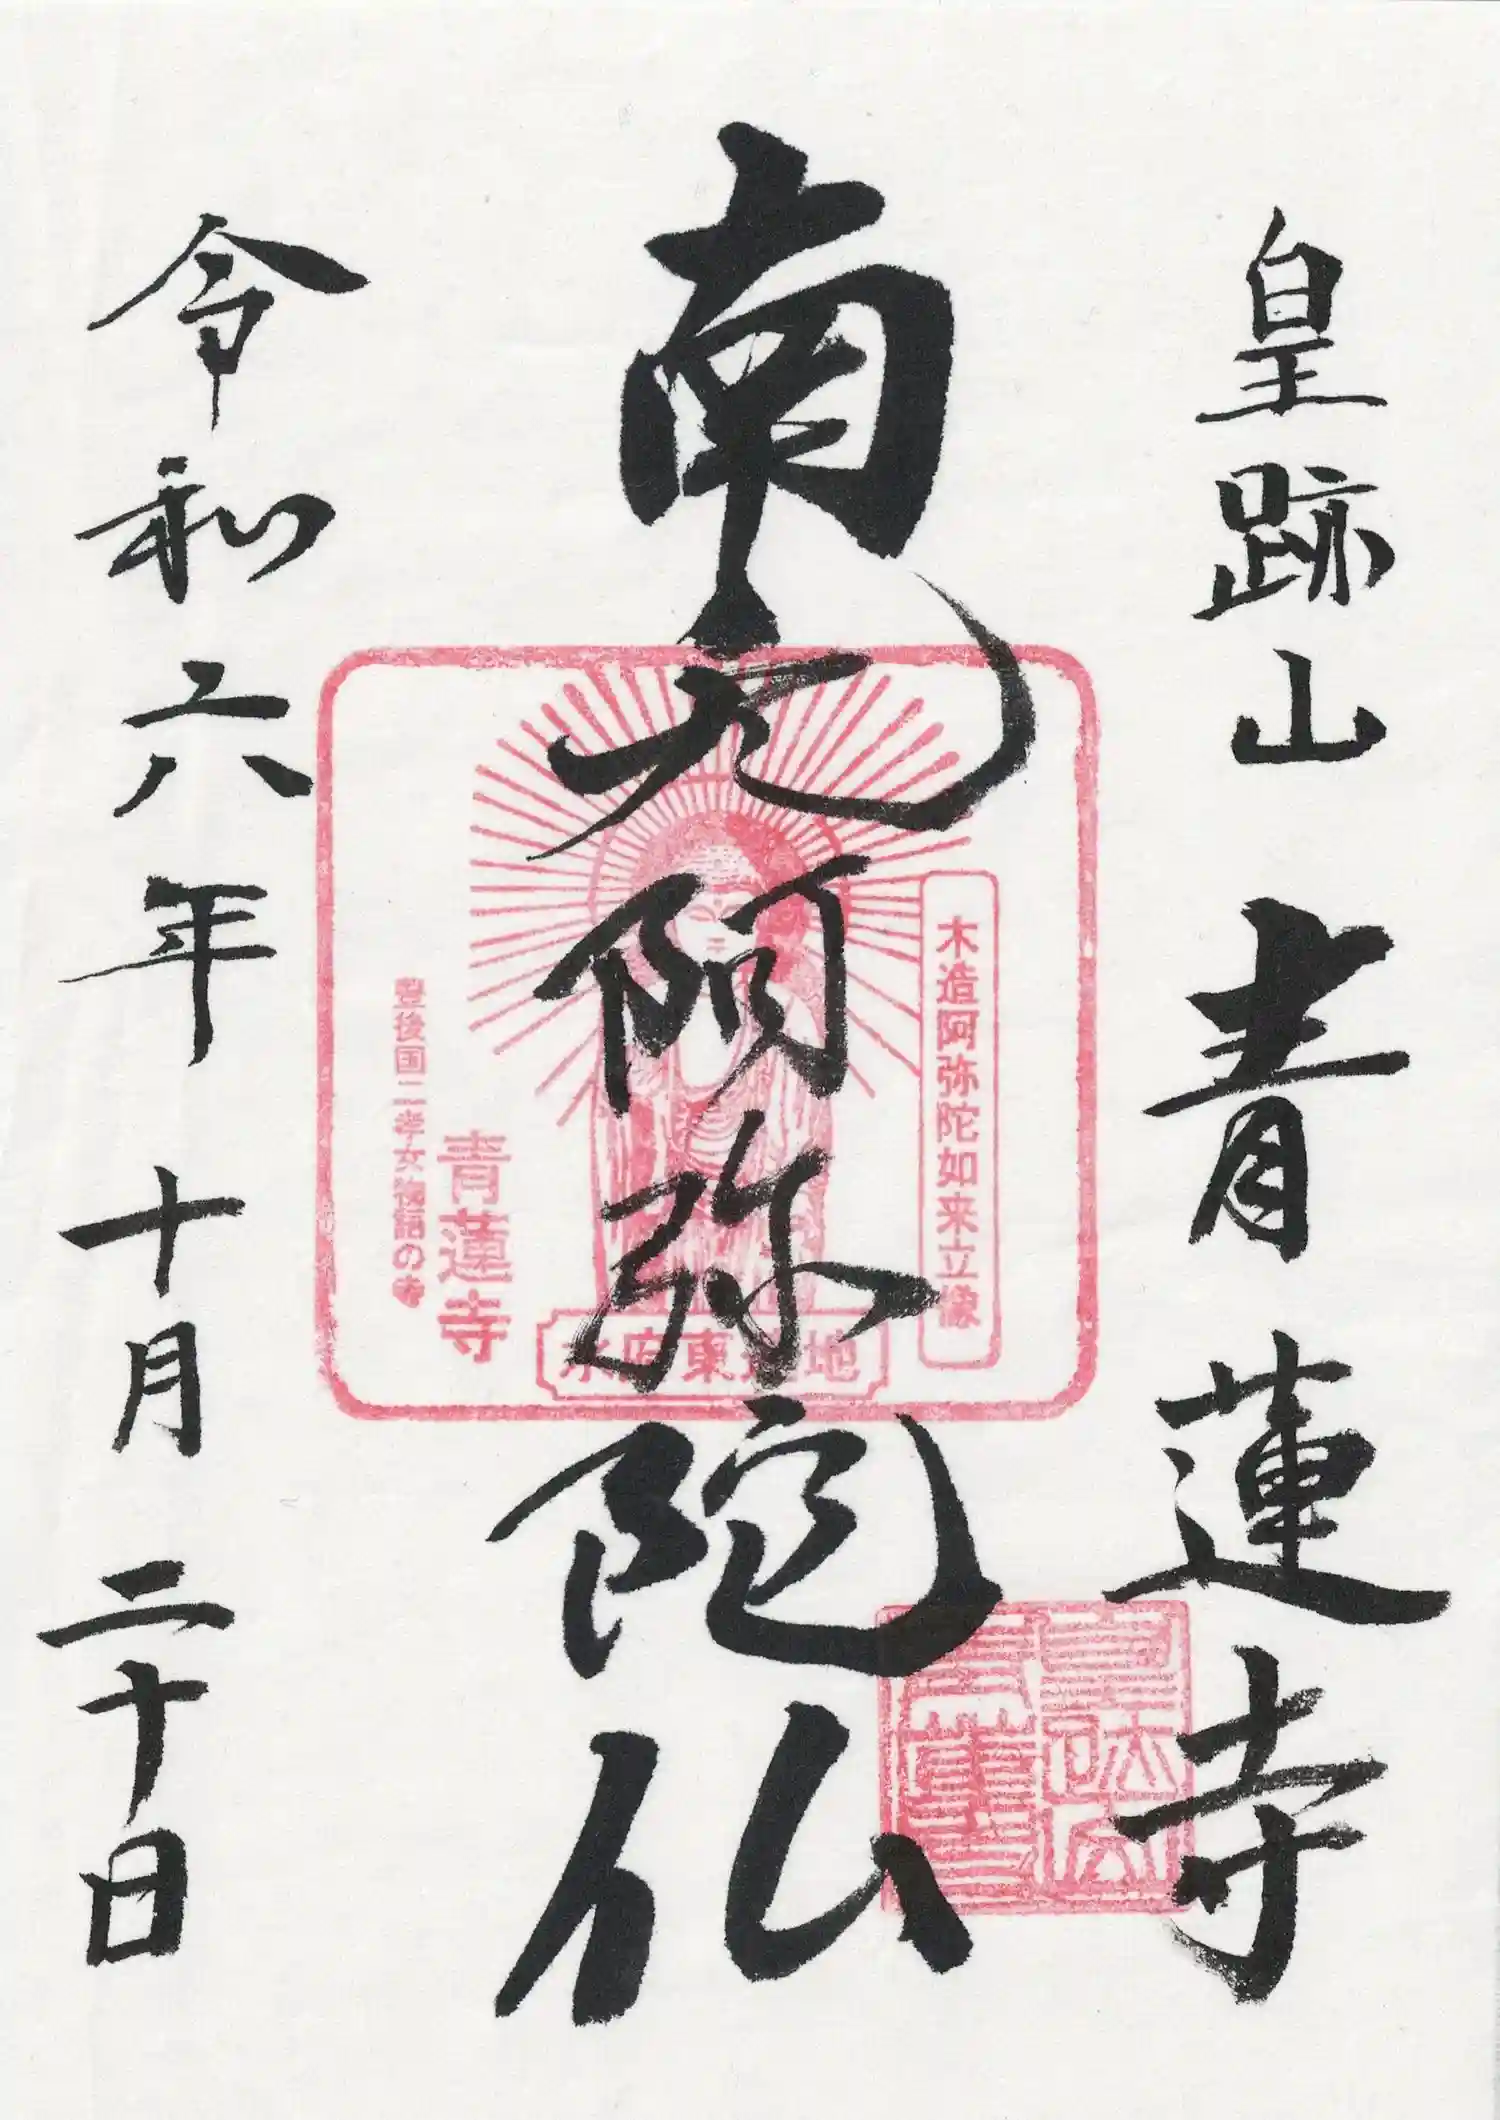 皇跡山 青蓮寺
南无阿弥陀仏
木造阿弥陀如来立像
水府東逆地
青蓮寺
豊後国二孝女物語の寺
令和六年十月二十日